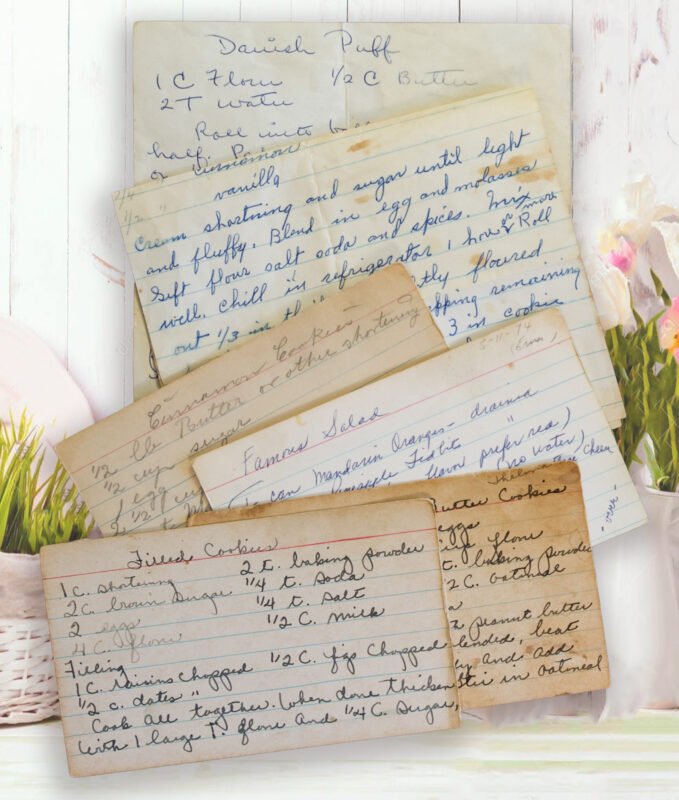 Danish Puff
1 C Flour 1/2 C Butter
2 T water
Roll into
half.
or cinnamon
1/4
1/2 " vanilla
Cream shortning and sugar until light
and fluffy. Blend in egg and molasses
Sift flour salt soda and spices. Mix
well. Chill in refrigerator 1 hour or more Roll
out 1/3 in floured
remaining
3 in cookie
Cinnamon Cookies
1/2 lb Butter or other shortening
1/2 cup sugar
1 egg
2 1/2 cup
3-11-74
Famous Salad
can Mandarin Oranges - drained
Pineapple Tidbits "
flavor prefer red)
(no water)
Cheese
"over"
Thelma
Butter Cookies
eggs
flour
t. baking powder
2 C. oatmeal
peanut butter
blended, beat
and add
Stir in oatmeal
Filled Cookies
1 C. shortening 2 t. baking powder
2 C. brown Sugar 1/4 t. Soda
2 eggs 1/4 t. Salt
4 C. flour 1/2 C. Milk
Filling
1 C. raisins chopped 1/2 C. figs Chopped
1/2 c. dates "
Cook all together. When done thicken
with 1 large T. flour and 1/4 C. Sugar,